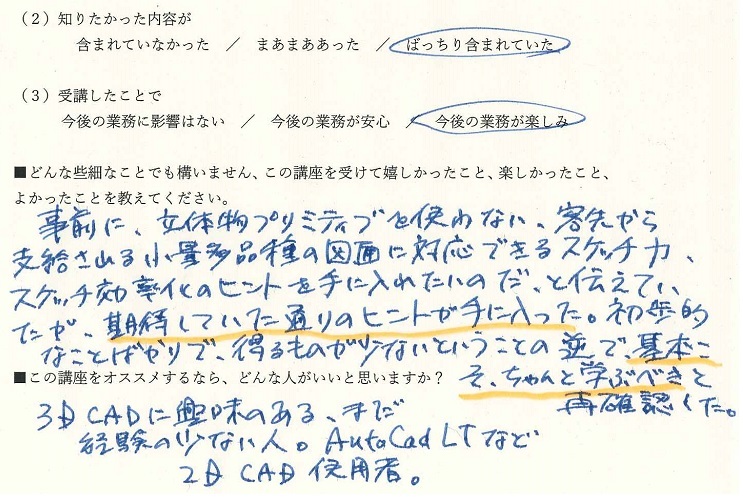 （2）知りたかった内容が
含まれていなかった ／ まあまああった ／ ばっちり含まれていた
（3）受講したことで
今後の業務に影響はない ／ 今後の業務が安心 ／ 今後の業務が楽しみ
■どんな些細なことでも構いません、この講座を受けて嬉しかったこと、楽しかったこと、
よかったことを教えてください。
事前に、立体物プリミティブを使わない、客先から
支給される小量多品種の図面に対応できるスケッチ力、
スケッチ効率化のヒントを手に入れたいのだ、と伝えてい
たが、期待していた通りのヒントが手に入った。初歩的
なことばかりで、得るものが少ないということの逆で、基本こ
そ、ちゃんと学ぶべきと
再確認した。
■この講座をオススメするなら、どんな人がいいと思いますか？
3D CADに興味のある、まだ
経験の少ない人。AutoCad LTなど
2D CAD 使用者。